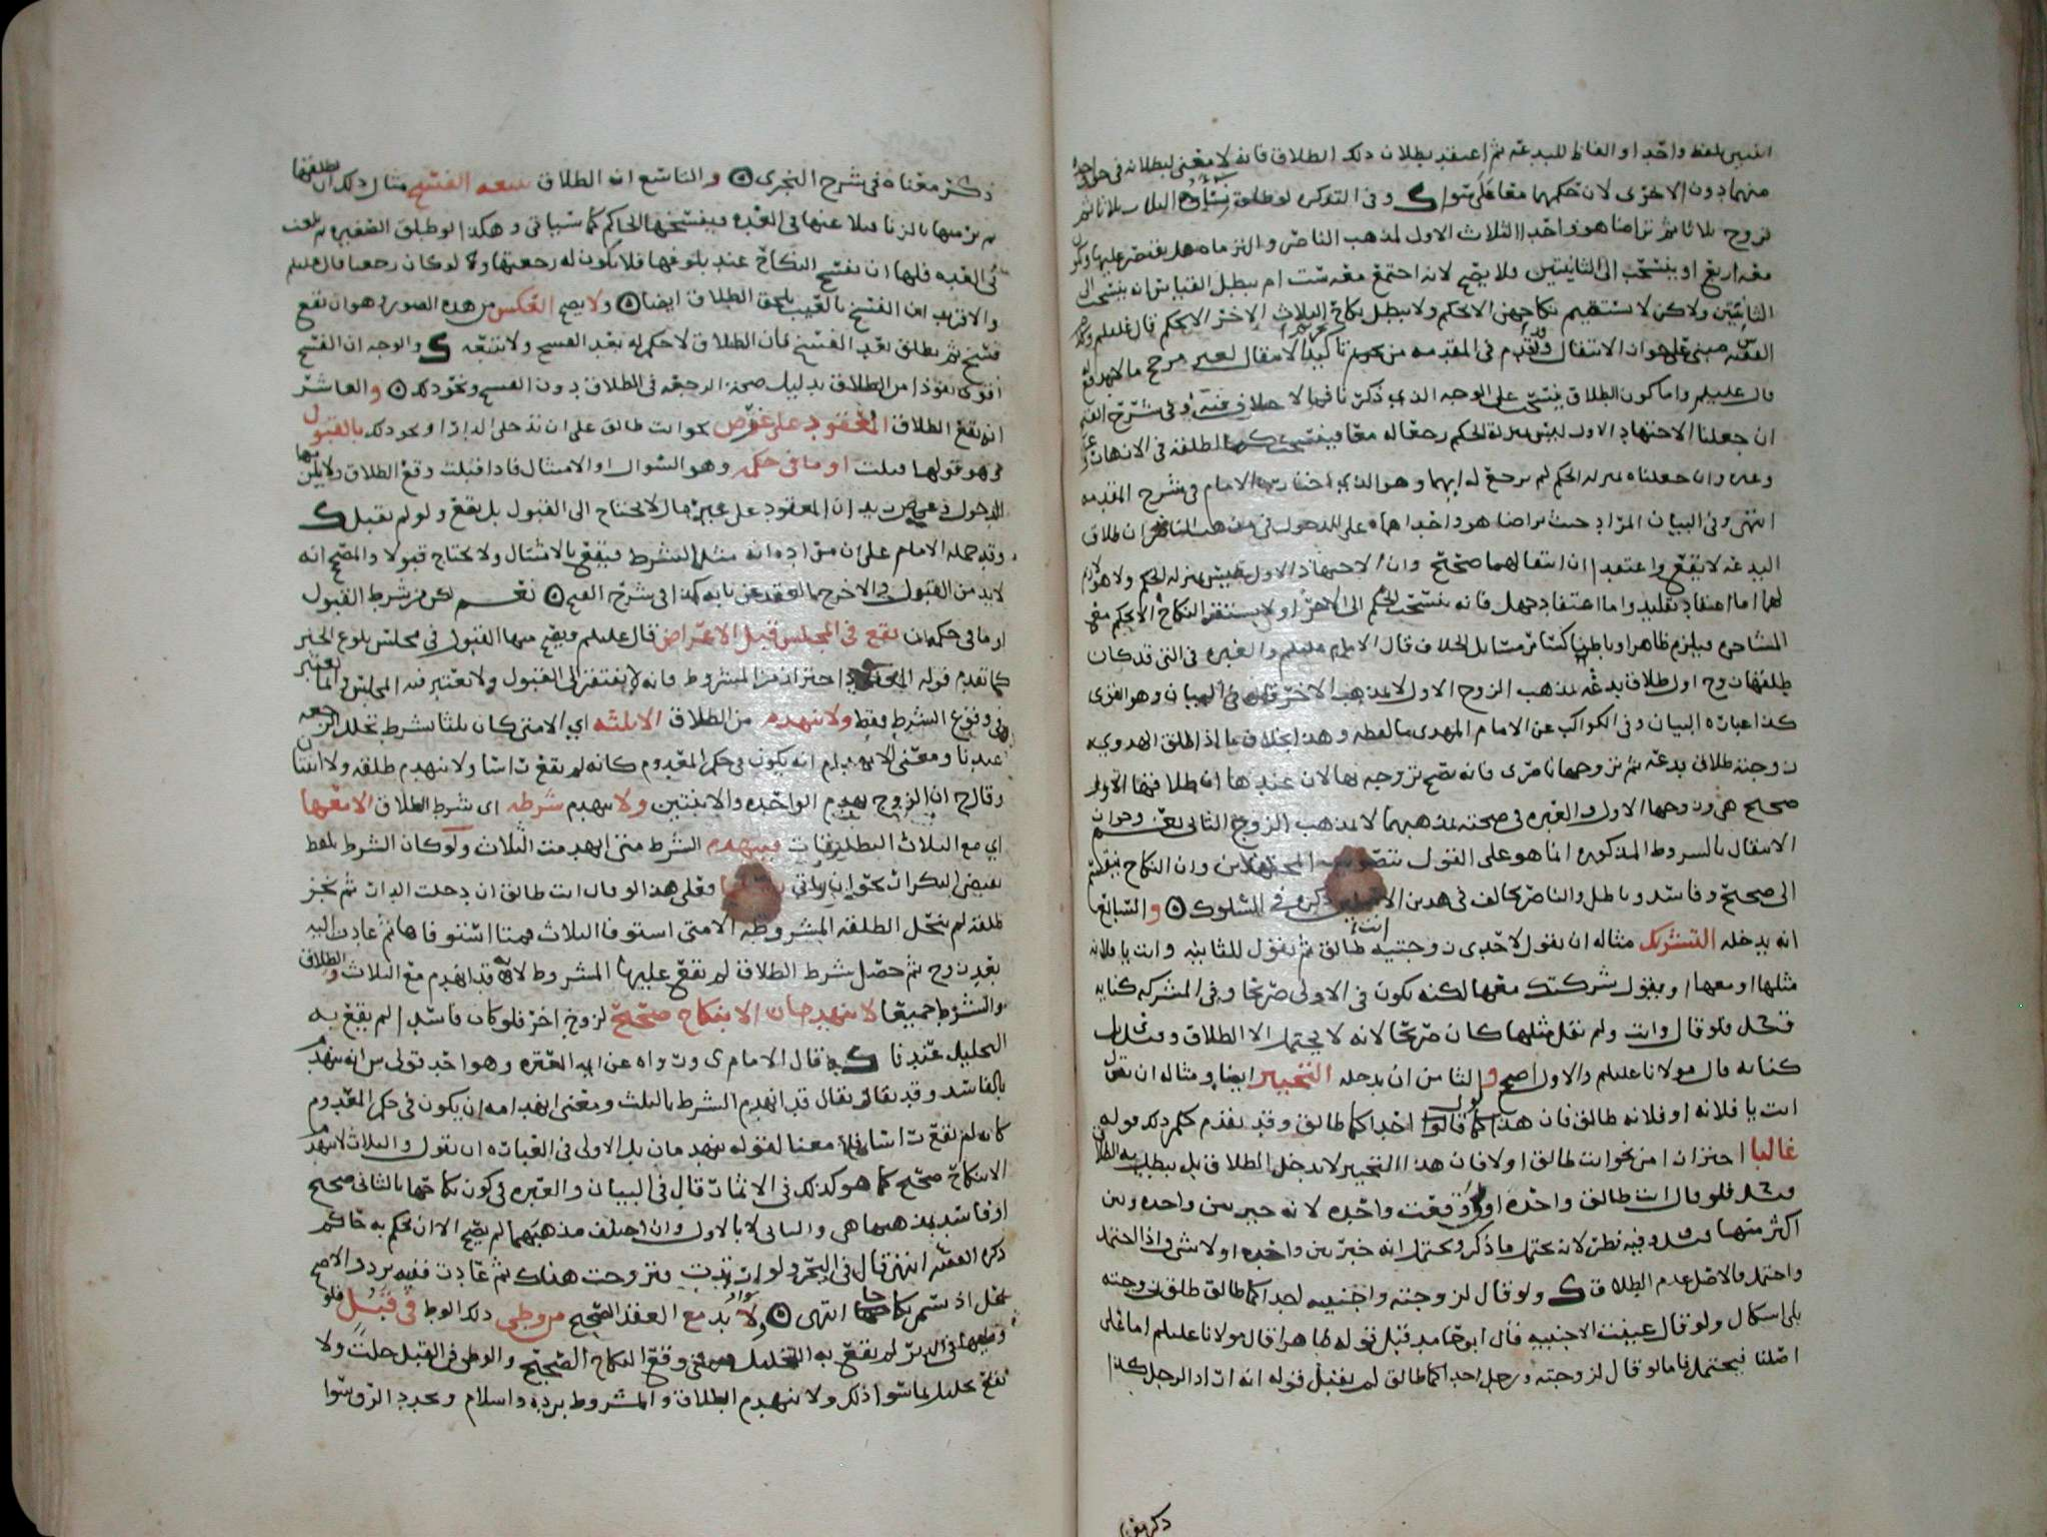 اثنتين بلفظ واحد او الفاظ للبدعه ثم اعتقد بطلان ذلك الطلاق فانه لا معنى لبطلانه في حق احدا
منهما دون الاخرى لان حكمهما معا على سوا وفي التذكره لو طلق ثلاثا ثم
تزوج ثلاثا ثم تراضا هو واحدا الثلاث الاول لمذهب الناصر والتزماه هل يقتصر عليها وتكون
معه اربع او ينسحب الى الثانيتين فلا يصح لانه اجتمع معه ست ام يبطل القياس انه ينسحب الى
الثانيتين ولكن لا يستقيم نكاحهن الا بحكم ولا يبطل نكاح الثلاث الاخر الا بحكم قال عليلم
الفقيه مبني على هو ان الانتقال وقد تقدم في المقدمه من تاكيد الانتقال لغير مرجح ما لا يهدفع
قال عليلم واما كون الطلاق ينسحب على الوجه الذي ذكرنا فمما لا خلاف فيه وفي شرح الفتح
ان جعلنا الاجتهاد الاول ليس بمنزلة الحكم رجعا له معا فينسحب حكم الطلقه في الانهات
وغيره وان جعلناه بمنزله الحكم لم يرجع له ايهما وهو الذي اختاره الامام في شرح المقدمه
انتهى وفي البيان المراد حيث تراضا هو واحداهما على الدخول في مذهب الناصر ان طلاق
البدعه لا يقع واعتقدا ان انتقالهما صحيح وان الاجتهاد الاول ليس بمنزله الحكم ولا هو لازم
لهما اما اعتقاد تقليد واما اعتقاد جهل فانه ينسحب الحكم الى الاخر او لا يستقر النكاح الا بحكم مع
المشاجره فيلزم ظاهرا وباطنا كسائر مسايل الخلاف قال الامام عليلم والعبره في التي قد كان
طلقها زوج اول طلاق بدعه بمذهب الزوج الاول لا بمذهب الاخر قال في البيان وهو اقوى
هكذا عبارة البيان وفي الكواكب عن الامام المهدي ما لفظه وهذا بخلاف ما اذا طلق الهدوي
زوجته طلاق بدعه ثم تزوجها ناصرى فانه يصح تزوجه بها لان عندها ان طلاقها الاول
صحيح هي وزوجها الاول والعبره في صحته بمذهبهما لا بمذهب الزوج الثاني نعم وجواز
الانتقال بالشروط المذكوره انما هو على القول بتصويب المجتهدين وان النكاح ينقسم
الى صحيح وفاسد وباطل والناصر يخالف في هذين الاصلين ذكره في السلوك والسابع
انه يدخله التشريك مثاله ان يقول لاحدى زوجتيه انت طالق ثم يقول للثانيه وانت يا فلانه
مثلها او معها او يقول شركتك معها لكنه يكون في الاولى صريحا وفي المشركه كنايه
قيل فلو قال وانت ولم يقل مثلها كان صريحا لانه لا يحتمل الا الطلاق وقيل بل
كنايه قال مولانا عليلم والاول اصح والثامن ان يدخله التخيير ايضا ومثاله ان يقول
انت يا فلانه او فلانه طالق فان هذا كما لو قال احداكما طالق وقد تقدم حكم ذلك قوله
غالبا احتراز امن نحو انت طالق اولا فان هذا التخيير لا يدخل الطلاق بل يبطل به الطلاق
قيل فلو قال انت طالق واحده او لا وقعت واحده لانه خير بين واحده وبين
اكثر منها قيل وفيه نظر لانه يحتمل ما ذكر ويحتمل انه خير بين واحده او لا شي واذا احتمل
واحتمل فالاصل عدم الطلاق ولو قال لزوجته واجنبيه احداكما طالق طلق زوجته
بلى اشكال ولو قال عنيت الاجنبيه فقال ابو حامد قبل قوله ظاهرا قال مولانا عليلم اما على
اصلنا فيحتمل فاما لو قال لزوجته ورجل احداكما طالق لم يقبل قوله انه اراد الرجل كذا
ذكر معناه في شرح النجرى والتاسع ان الطلاق يتبعه الفسخ مثال ذلك ان يطلقها
ثم يرميها بالزنا فيلاعنها في العده فيفسخها الحاكم كما سياتي وهكذا لو طلق الصغيره ثم بلغت
في العده فلها ان تفسخ النكاح عند بلوغها فلا يكون له رجعتها ولو كان رجعيا قال عليلم
والاقرب ان الفسخ بالعيب يلحق الطلاق ايضا ولا يصح العكس من هذه الصوره وهو ان يقع
فسخ ثم يطلق بعد الفسخ فان الطلاق لا حكم له بعد الفسخ ولا يتبعه والوجه ان الفسخ
اقوى نفوذا من الطلاق بدليل صحة الرجعه في الطلاق دون الفسخ ونحو ذلك والعاشر
انه يقع الطلاق المعقود على عوض نحو انت طالق على ان تدخلى الدار او نحو ذلك بالقبول
وهو قولها قبلت او ما في حكمه وهو السوال او الامتثال فاذا قبلت وقع الطلاق ولا يلزمها
الدخول ان المعقود على غير مال لا يحتاج الى القبول بل يقع ولو لم تقبل
وقد حمله الامام على ان مراده انه مثل الشرط فيقع بالامتثال ولا يحتاج قبولا والصحيح انه
لا بد من القبول والا خرج بالعقد عن بابه كذا في شرح الفتح نعم لكن من شرط القبول
او ما في حكمه ان يقع في المجلس قبل الاعراض قال عليلم ويصح منها القبول في مجلس بلوغ الخبر
كما تقدم قوله احتراز من المشروط فانه لا يفتقر الى القبول ولا يعتبر فيه المجلس وانما يعتبر
وقوع الشرط فقط ولا ينهدم من الطلاق الا ثلثه اي الا متى كان ثلثا بشرط تخلل الرجعه
عندنا ومعنى الانهدام انه يكون في حكم المعدوم كانه لم يقع راسا ولا ينهدم طلقه ولا اثنتان
وقال ح ان الزوج يهدم الواحده والاثنتين ولا ينهدم شرطه اى شرط الطلاق الا معها
اي مع الثلاث التطليقات فينهدم الشرط متى انهدمت الثلاث ولو كان الشرط بلفظ
يقتضي التكرار نحو ان فعلى هذا لو قال انت طالق ان دخلت الدار ثم نجز
طلقه لم تنحل الطلقه المشروطه الا متى استوفا الثلاث فمتا استوفاها ثم عادت اليه
بعد زوج ثم حصل شرط الطلاق لم يقع عليها المشروط لانه قد انهدم مع الثلاث والطلاق
والشرط جميعا لا ينهدمان الا بنكاح صحيح لزوج اخر فلو كان فاسدا لم يقع به
التحليل عندنا قال الامام ى ورواه عن ايمه العتره وهو احد قولي ش انه ينهدم
بالفاسد وقد يقال قد انهدم الشرط بالثلث ومعنى انهدامه ان يكون في حكم المعدوم
كانه لم يقع راسا فلا معنا لقوله ينهدمان بل الاولى في العباره ان يقول والثلاث لا ينهدم
الا بنكاح صحيح كما هو كذلك في الاثمار قال في البيان والعبره في كون نكاحها بالثاني صحيح
او فاسد بمذهبها هي والثاني لا بالاول وان اختلف مذهبهما لم يصح الا ان يحكم به حاكم
ذكره الفقيه انتهى قال في البحر ولو ارتدت فتزوجت هناك ثم عادت ففيه تردد الاصح
يحل اذ يسمى نكاحا انتهى ولا بد مع العقد الصحيح من وطي ذلك الوطي في قبل فلو
وطيها في الدبر لم يقع به التحليل فمتى وقع النكاح الصحيح والوطي في القبل حلت ولا
يقع تحليل بما سوا ذلك ولا ينهدم الطلاق والمشروط برده واسلام وتجدد الرق سوا